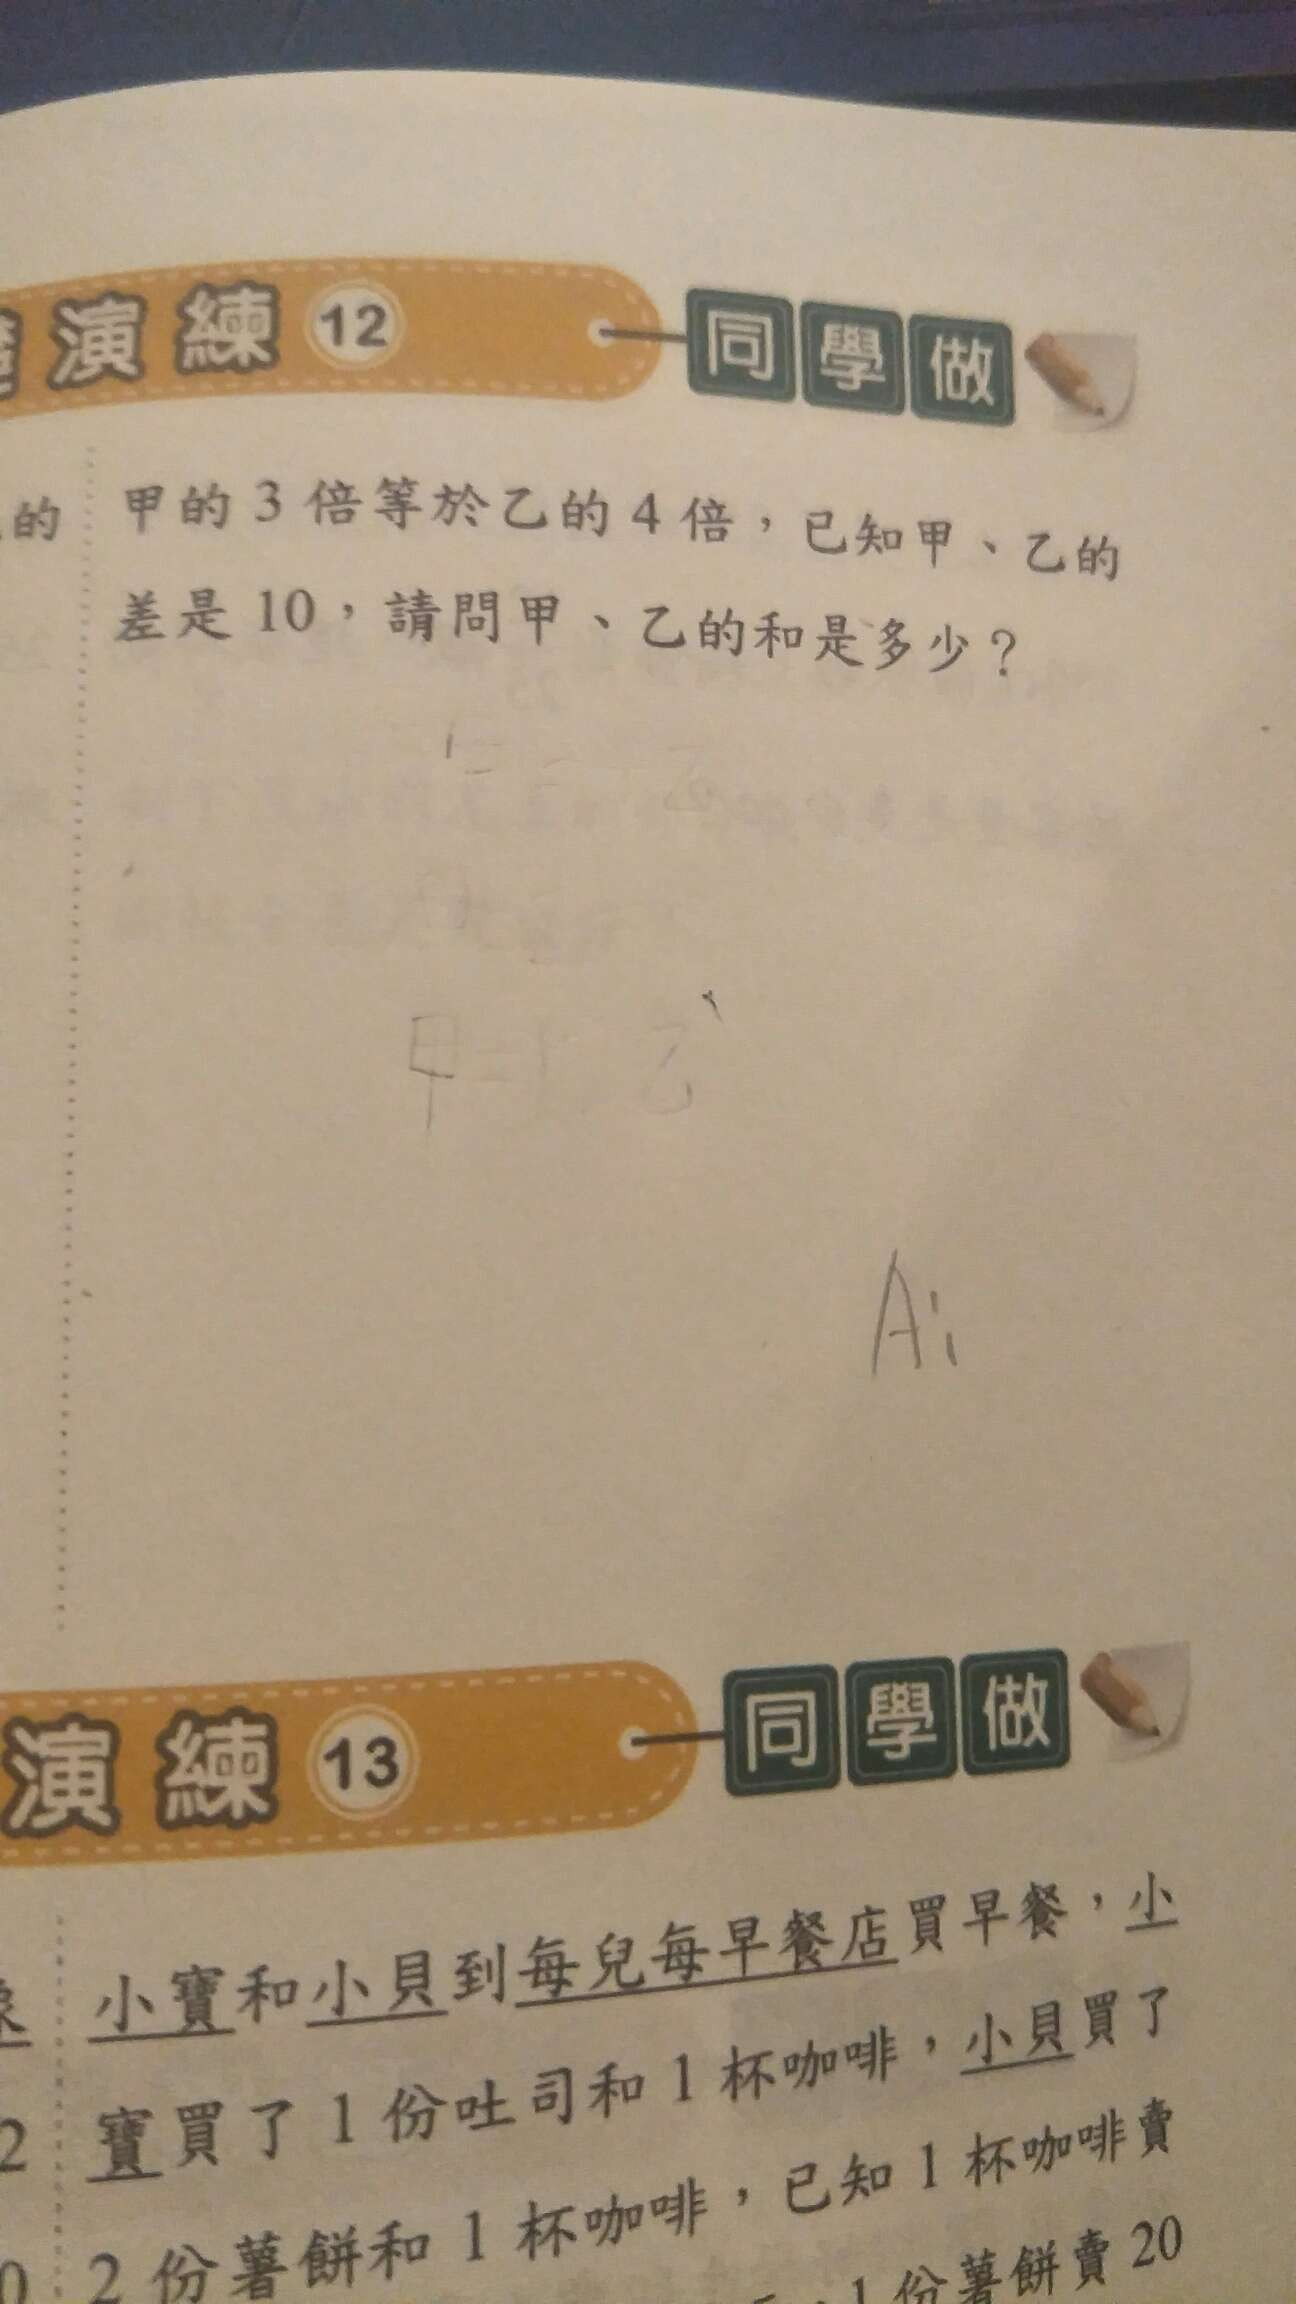 演練 12 同學做
的
甲的 3 倍等於乙的 4 倍，已知甲、乙的
差是 10，請問甲、乙的和是多少？
甲=1 乙
A:
演練 13 同學做
小寶和小貝到每兒每早餐店買早餐，小
2 寶買了 1 份吐司和 1 杯咖啡，小貝買了
0 2 份薯餅和 1 杯咖啡，已知 1 杯咖啡賣
1 份薯餅賣 20